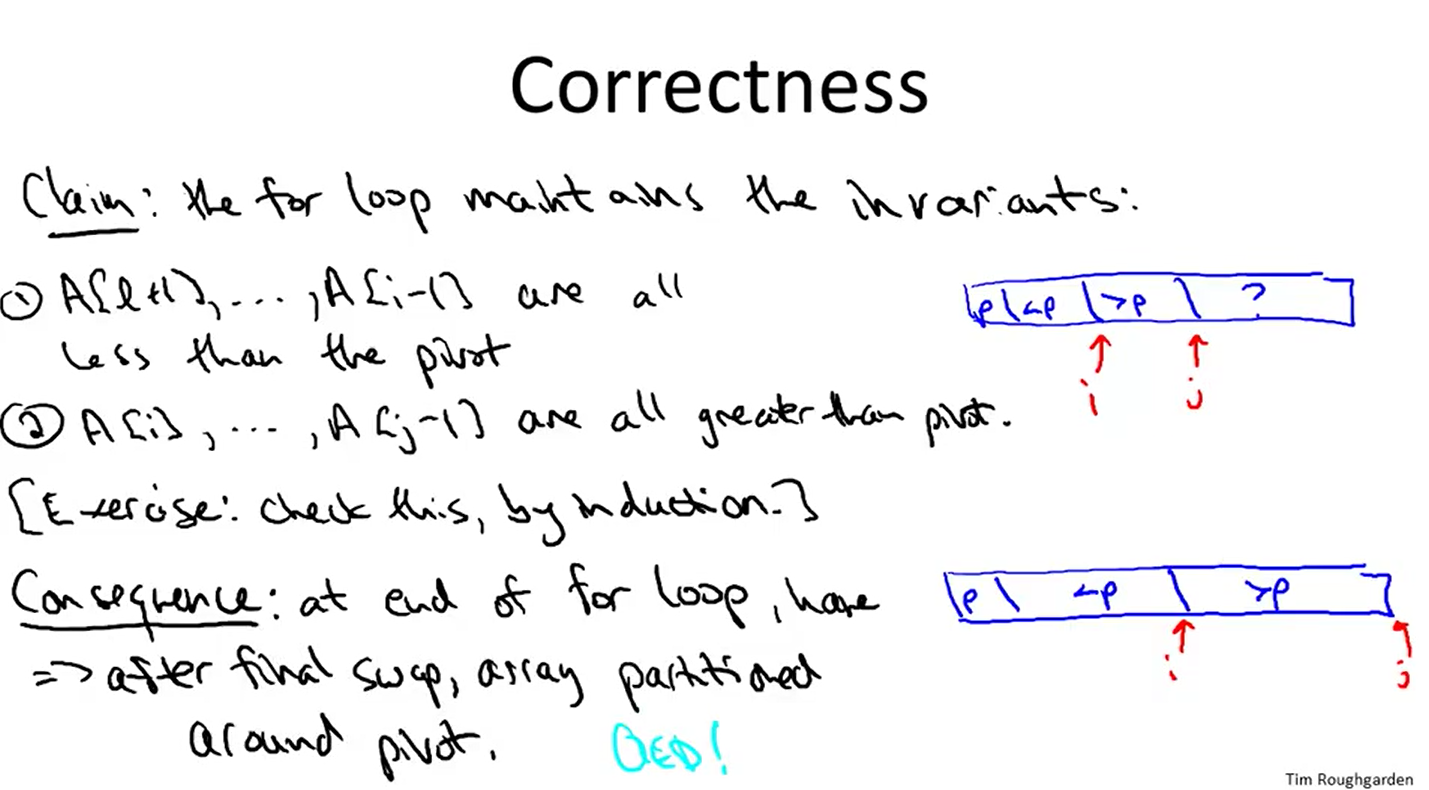 Correctness
Claim: the for loop maintains the invariants:
① A[l+1], ..., A[i-1] are all
less than the pivot
p | <p | >p | ?
i j
② A[i], ..., A[j-1] are all greater than pivot.
[Exercise: check this, by induction.]
Consequence: at end of for loop, have
p | <p | >p
i j
=> after final swap, array partitioned
around pivot. QED!
Tim Roughgarden